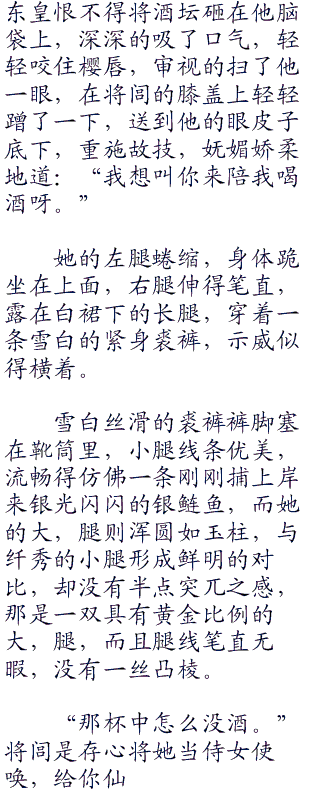 东皇恨不得将酒坛砸在他脑
袋上，深深的吸了口气，轻
轻咬住樱唇，审视的扫了他
一眼，在将闾的膝盖上轻轻
蹭了一下，送到他的眼皮子
底下，重施故技，妩媚娇柔
地道：“我想叫你来陪我喝
酒呀。”
她的左腿蜷缩，身体跪
坐在上面，右腿伸得笔直，
露在白裙下的长腿，穿着一
条雪白的紧身裘裤，示威似
得横着。
雪白丝滑的裘裤裤脚塞
在靴筒里，小腿线条优美，
流畅得仿佛一条刚刚捕上岸
来银光闪闪的银鲢鱼，而她
的大，腿则浑圆如玉柱，与
纤秀的小腿形成鲜明的对
比，却没有半点突兀之感，
那是一双具有黄金比例的
大，腿，而且腿线笔直无
暇，没有一丝凸棱。
“那杯中怎么没酒。”
将闾是存心将她当侍女使
唤，给你仙